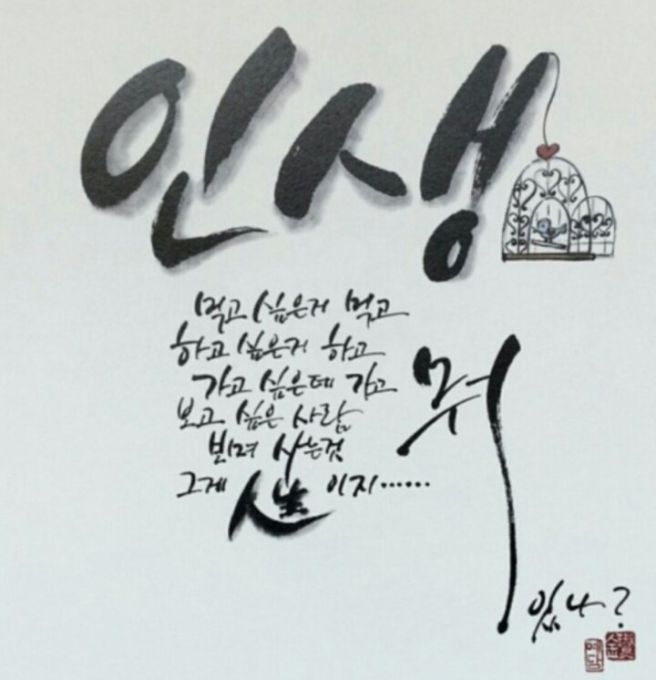 인생
먹고 싶은거 먹고
하고 싶은거 하고
가고 싶은데 가고
보고 싶은 사람
보며 사는것
그게 人生 이지……
뭐
있나?